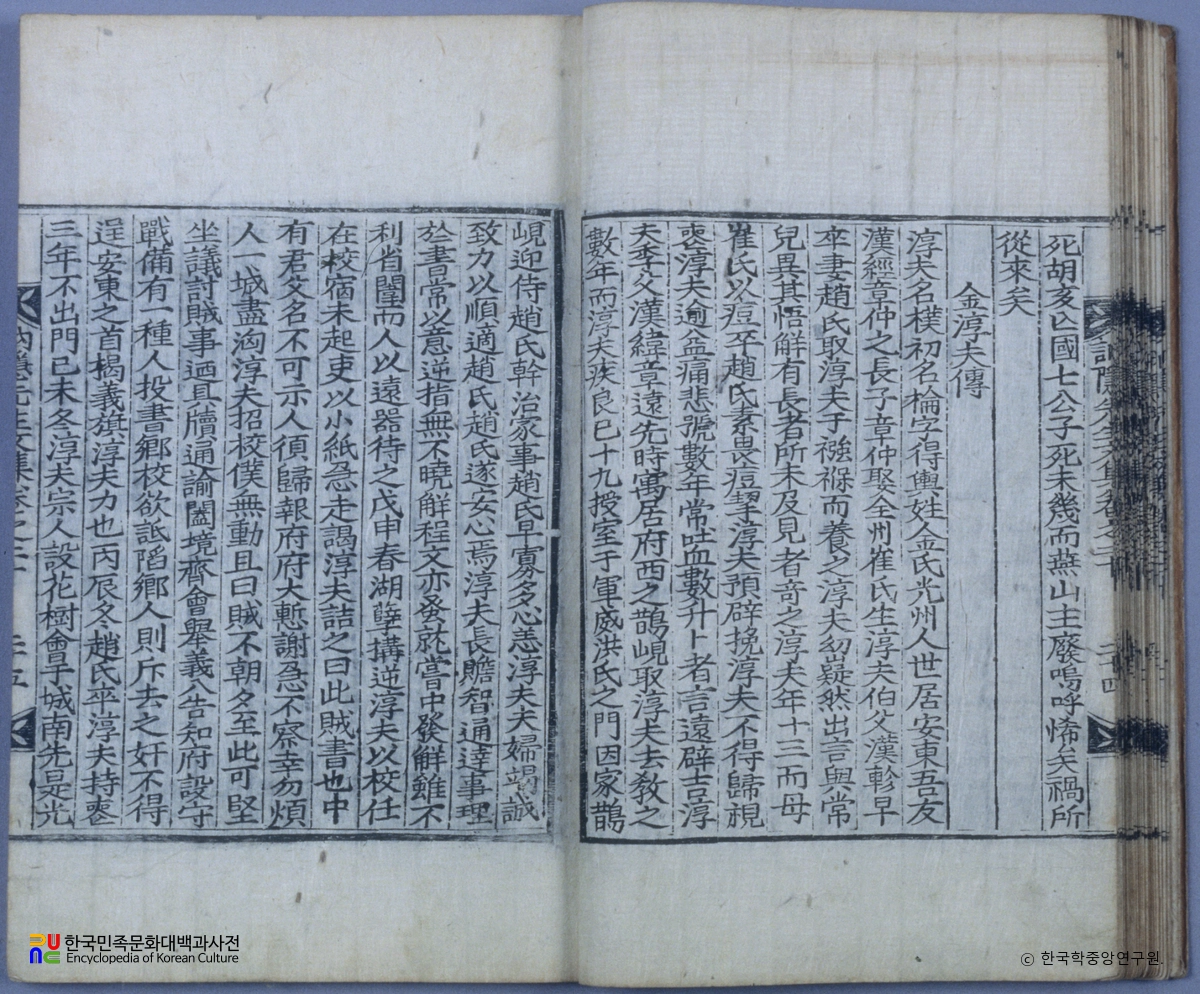 死胡亥亡國七公子死未幾而燕山主廢嗚呼悕矣禍所
從來矣
金淳夫傳
淳夫名樸初名棆字得輿姓金氏光州人世居安東吾友
漢經章仲之長子章仲娶全州崔氏生淳夫伯父漢軫早
卒妻趙氏取淳夫于襁褓而養之淳夫幼嶷然出言與常
兒異其悟解有長者所未及見者奇之淳夫年十三而母
崔氏以痘卒趙氏素畏痘挈淳夫預辟挽淳夫不得歸視
喪淳夫逾益痛悲號數年常吐血數升卜者言遠辟吉淳
夫季父漢緯章遠先時寓居府西之鵲峴取淳夫去敎之
數年而淳夫疾良已十九授室于軍威洪氏之門因家鵲
峴迎侍趙氏幹治家事趙氏早寡多心恙淳夫夫婦竭誠
致力以順適趙氏趙氏遂安心焉淳夫長贍智通達事理
於書常以意逆指無不曉解程文亦發就嘗中發解雖不
利省闈而人以遠器待之戊申春湖孽搆逆淳夫以校任
在校宿未起吏以小紙急走謁淳夫詰之曰此賊書也中
有君父名不可示人須歸報府府大慙謝急不察幸勿煩
人一城盡洶淳夫招校僕無動且曰賊不朝夕至此可堅
坐議討賊事迺且牘通諭闔境齊會擧義八告知府設守
戰備有一種人投書鄕校欲詆䧟鄕人則斥去之奸不得
逞安東之首揭義旗淳夫力也丙辰冬趙氏卒淳夫持喪
三年不出門己未冬淳夫宗人設花樹會于城南先是光
訥隱先生文集卷之二十 二十五
한국민족문화대백과사전
Encyclopedia of Korean Culture
ⓒ 한국학중앙연구원